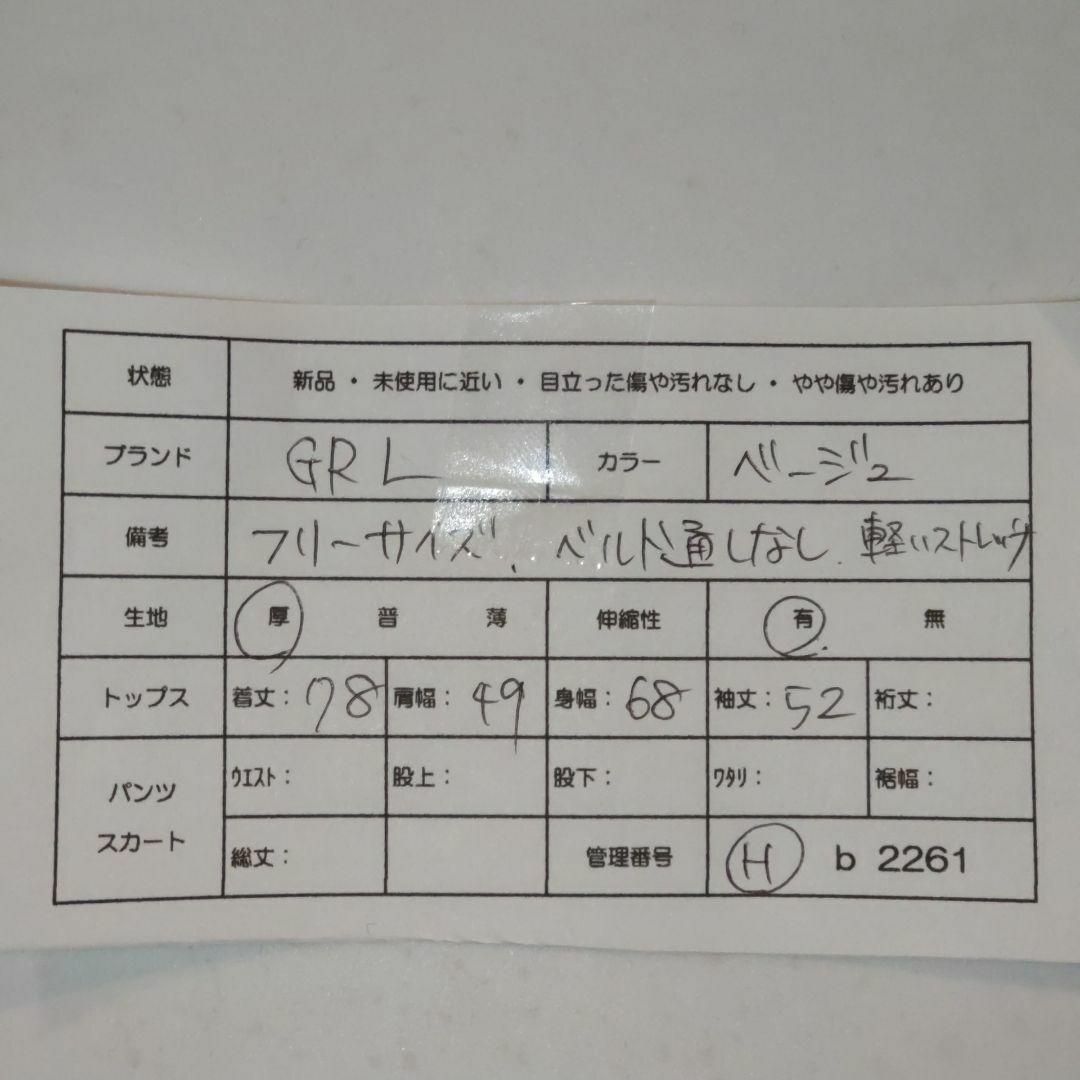 状態 新品 ・ 未使用に近い ・ 目立った傷や汚れなし ・ やや傷や汚れあり
ブランド GRL カラー ベージュ
備考 フリーサイズ、ベルト通しなし、軽いストレッチ
生地 厚 普 薄 伸縮性 有 無
トップス 着丈：78 肩幅：49 身幅：68 袖丈：52 裄丈：
パンツ ウエスト： 股上： 股下： ワタリ： 裾幅：
スカート 総丈： 管理番号 H b 2261